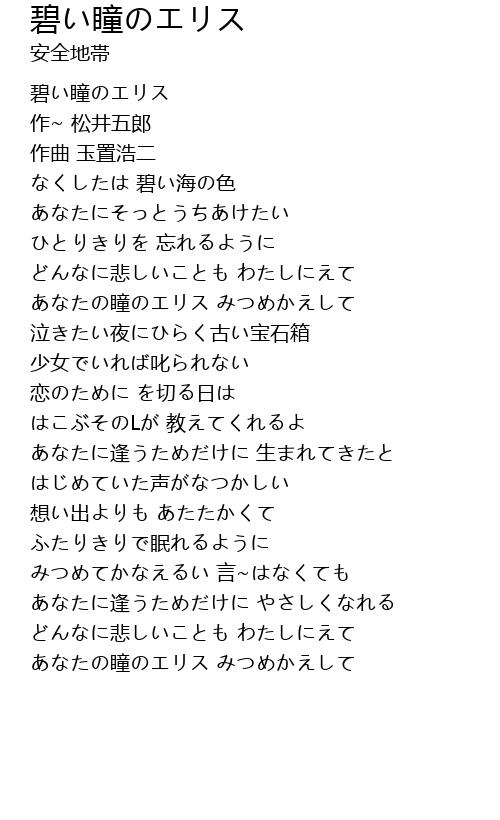 碧い瞳のエリス
安全地帯
碧い瞳のエリス
作~ 松井五郎
作曲 玉置浩二
なくしたは 碧い海の色
あなたにそっとうちあけたい
ひとりきりを 忘れるように
どんなに悲しいことも わたしにえて
あなたの瞳のエリス みつめかえして
泣きたい夜にひらく古い宝石箱
少女でいれば叱られない
恋のために を切る日は
はこぶそのLが 教えてくれるよ
あなたに逢うためだけに 生まれてきたと
はじめていた声がなつかしい
想い出よりも あたたかくて
ふたりきりで眠れるように
みつめてかなえるい 言~はなくても
あなたに逢うためだけに やさしくなれる
どんなに悲しいことも わたしにえて
あなたの瞳のエリス みつめかえして